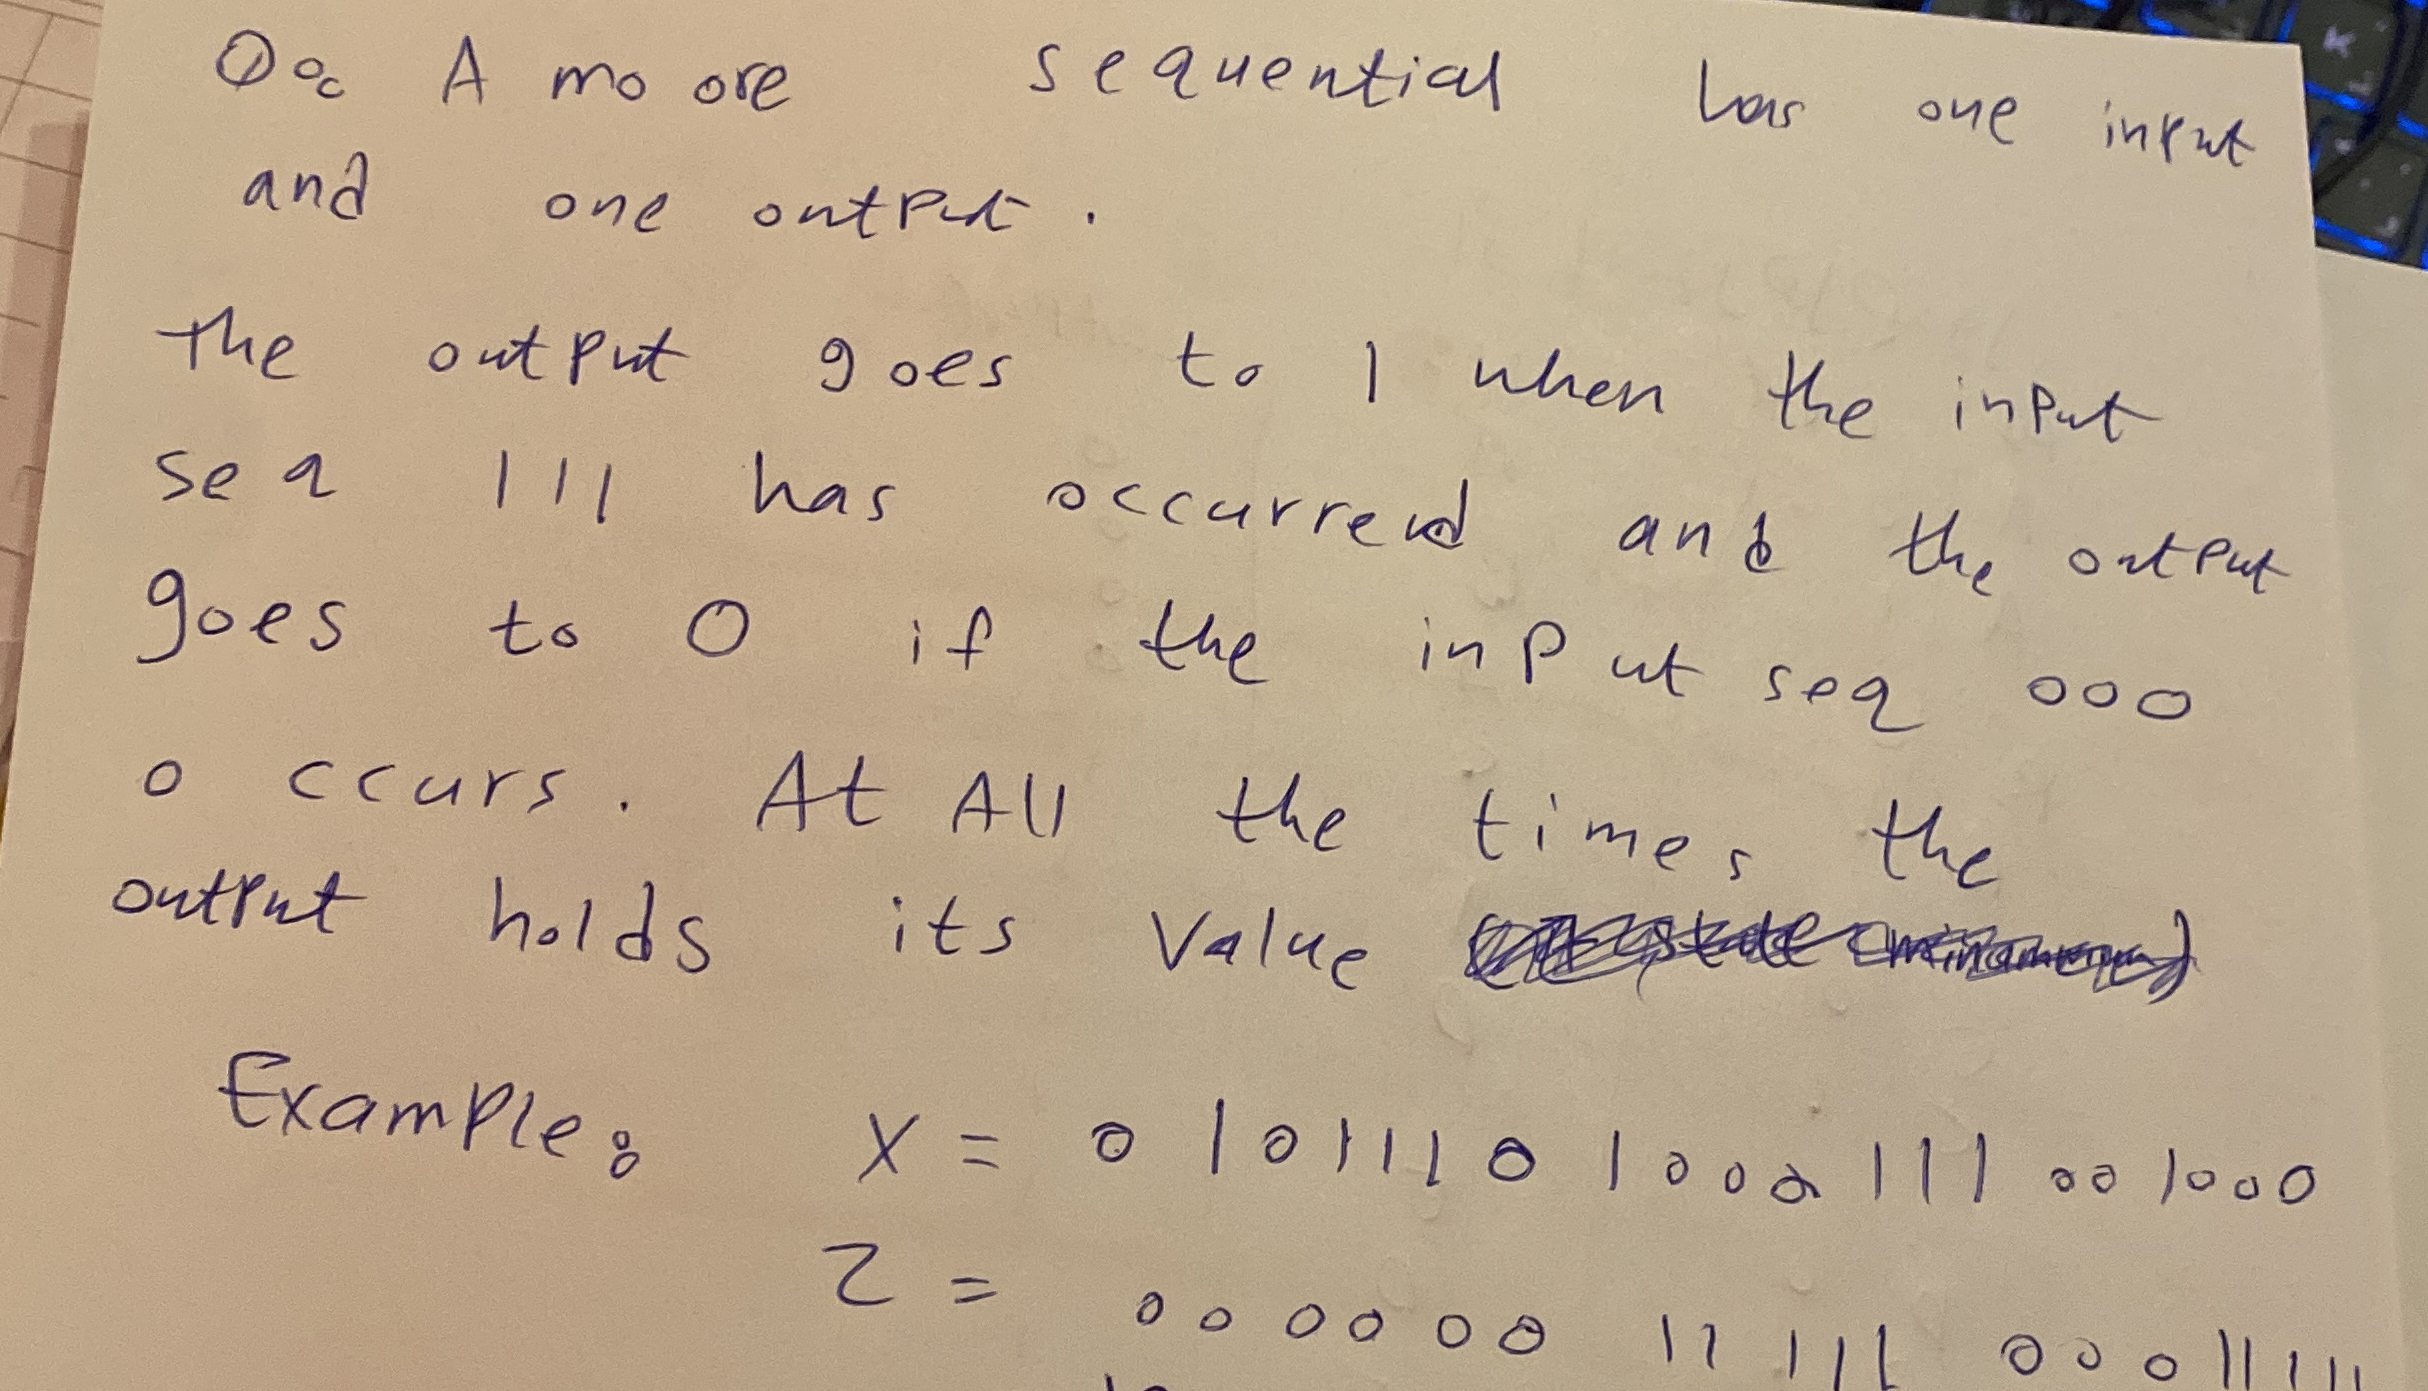 Q: A moore sequential has one input
and one output.
the output goes to 1 when the input
seq 111 has occurred and the output
goes to 0 if the input seq 000
occurs. At All the times the
output holds its value
Example: X = 0 1 0 1 1 1 0 1 0 0 0 1 1 1 0 0 1 0 0 0
Z = 0 0 0 0 0 0 1 1 1 1 1 0 0 0 1 1 1 1 1